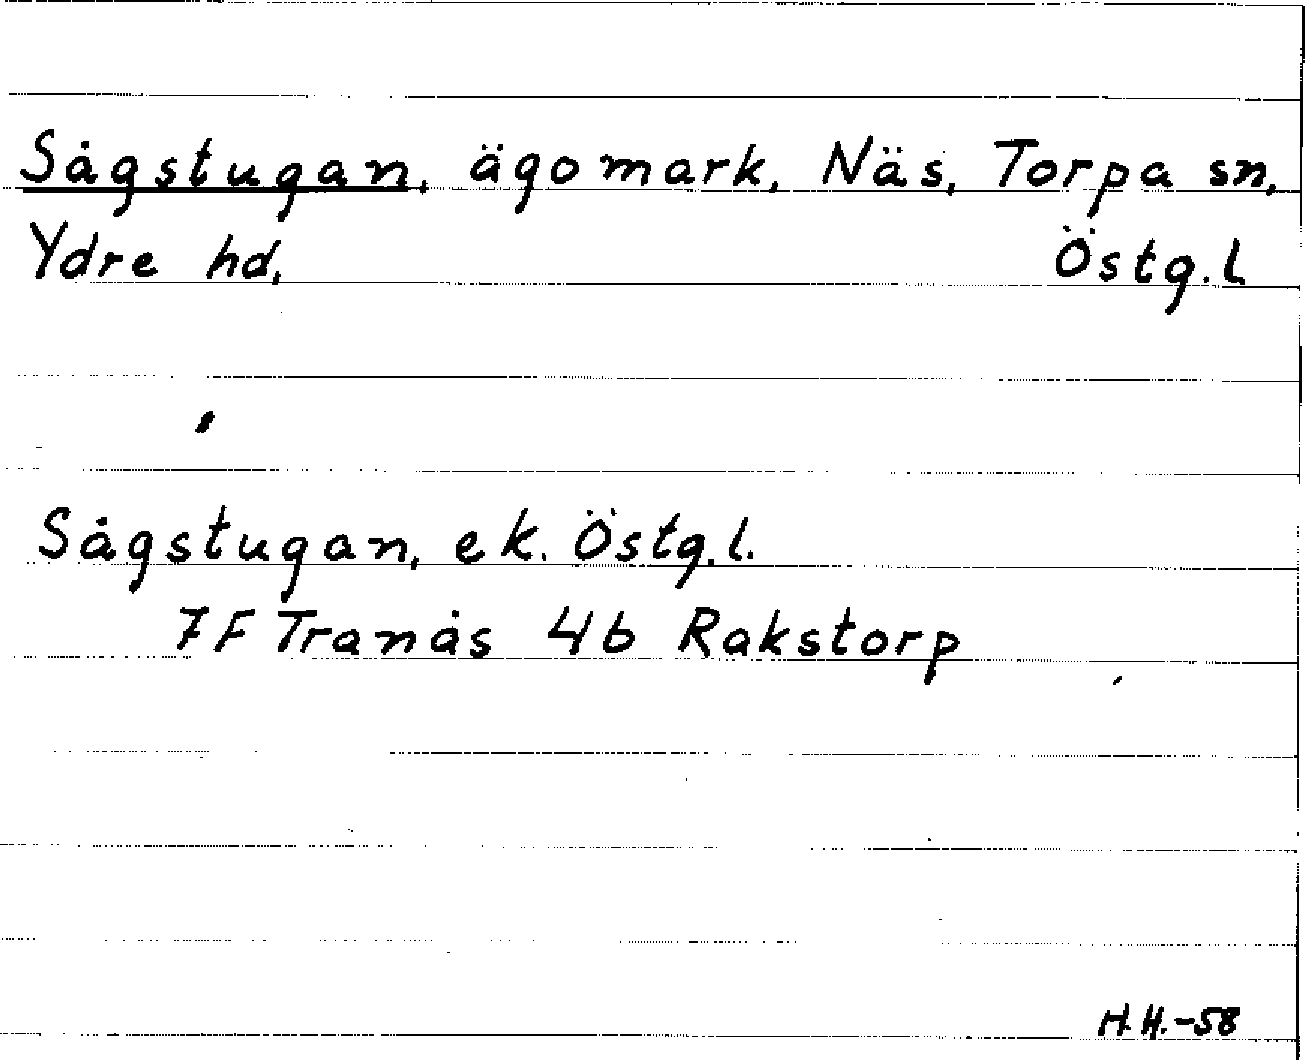 Sågstugan, ägomark, Näs, Torpa sn,
Ydre hd, Östg.l
Sågstugan, ek. Östg.l.
7F Tranås 4b Rakstorp
H.H.-58